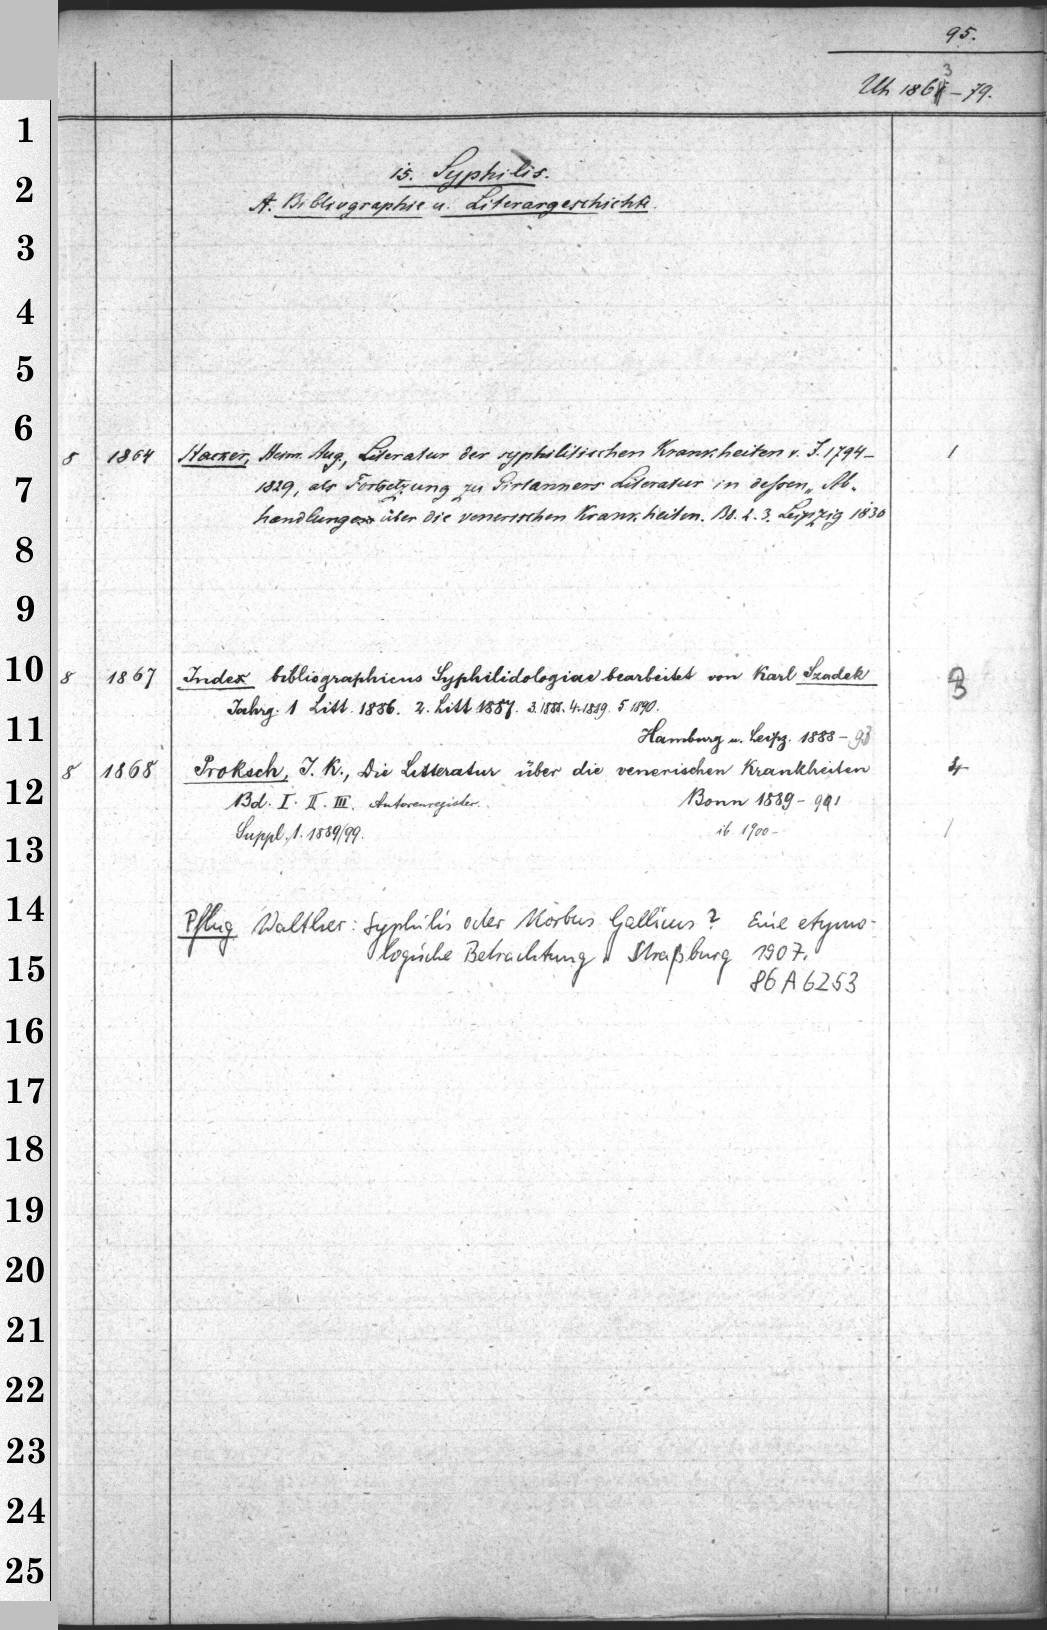 95.
Uh 1863-79.
15. Syphilis.
A. Bibliographie u. Literargeschichte.
8 1864 Hacker, Heinr. Aug., Literatur der syphilitischen Krankheiten v. J. 1794- 1
1829, als Fortsetzung zu Girtanners Literatur in dessen „Ab-
handlungen über die venerischen Krankheiten. Bd. 2. 3. Leipzig 1830
8 1867 Index bibliographicus Syphilidologiae bearbeitet von Karl Szadek 3
Jahrg. 1 Litt. 1886. 2. Litt 1887. 3. 1888. 4. 1889. 5 1890.
Hamburg u. Leipz. 1888-93
8 1868 Proksch, J. K., Die Litteratur über die venerischen Krankheiten 4
Bd. I. II. III. Autorenregister. Bonn 1889-91
Suppl. 1. 1889/99. ib 1900- 1
Pflug Walther: Syphilis oder Morbus Gallicus? Eine etymo-
logische Betrachtung. Straßburg 1907.
86 A 6253
1
2
3
4
5
6
7
8
9
10
11
12
13
14
15
16
17
18
19
20
21
22
23
24
25